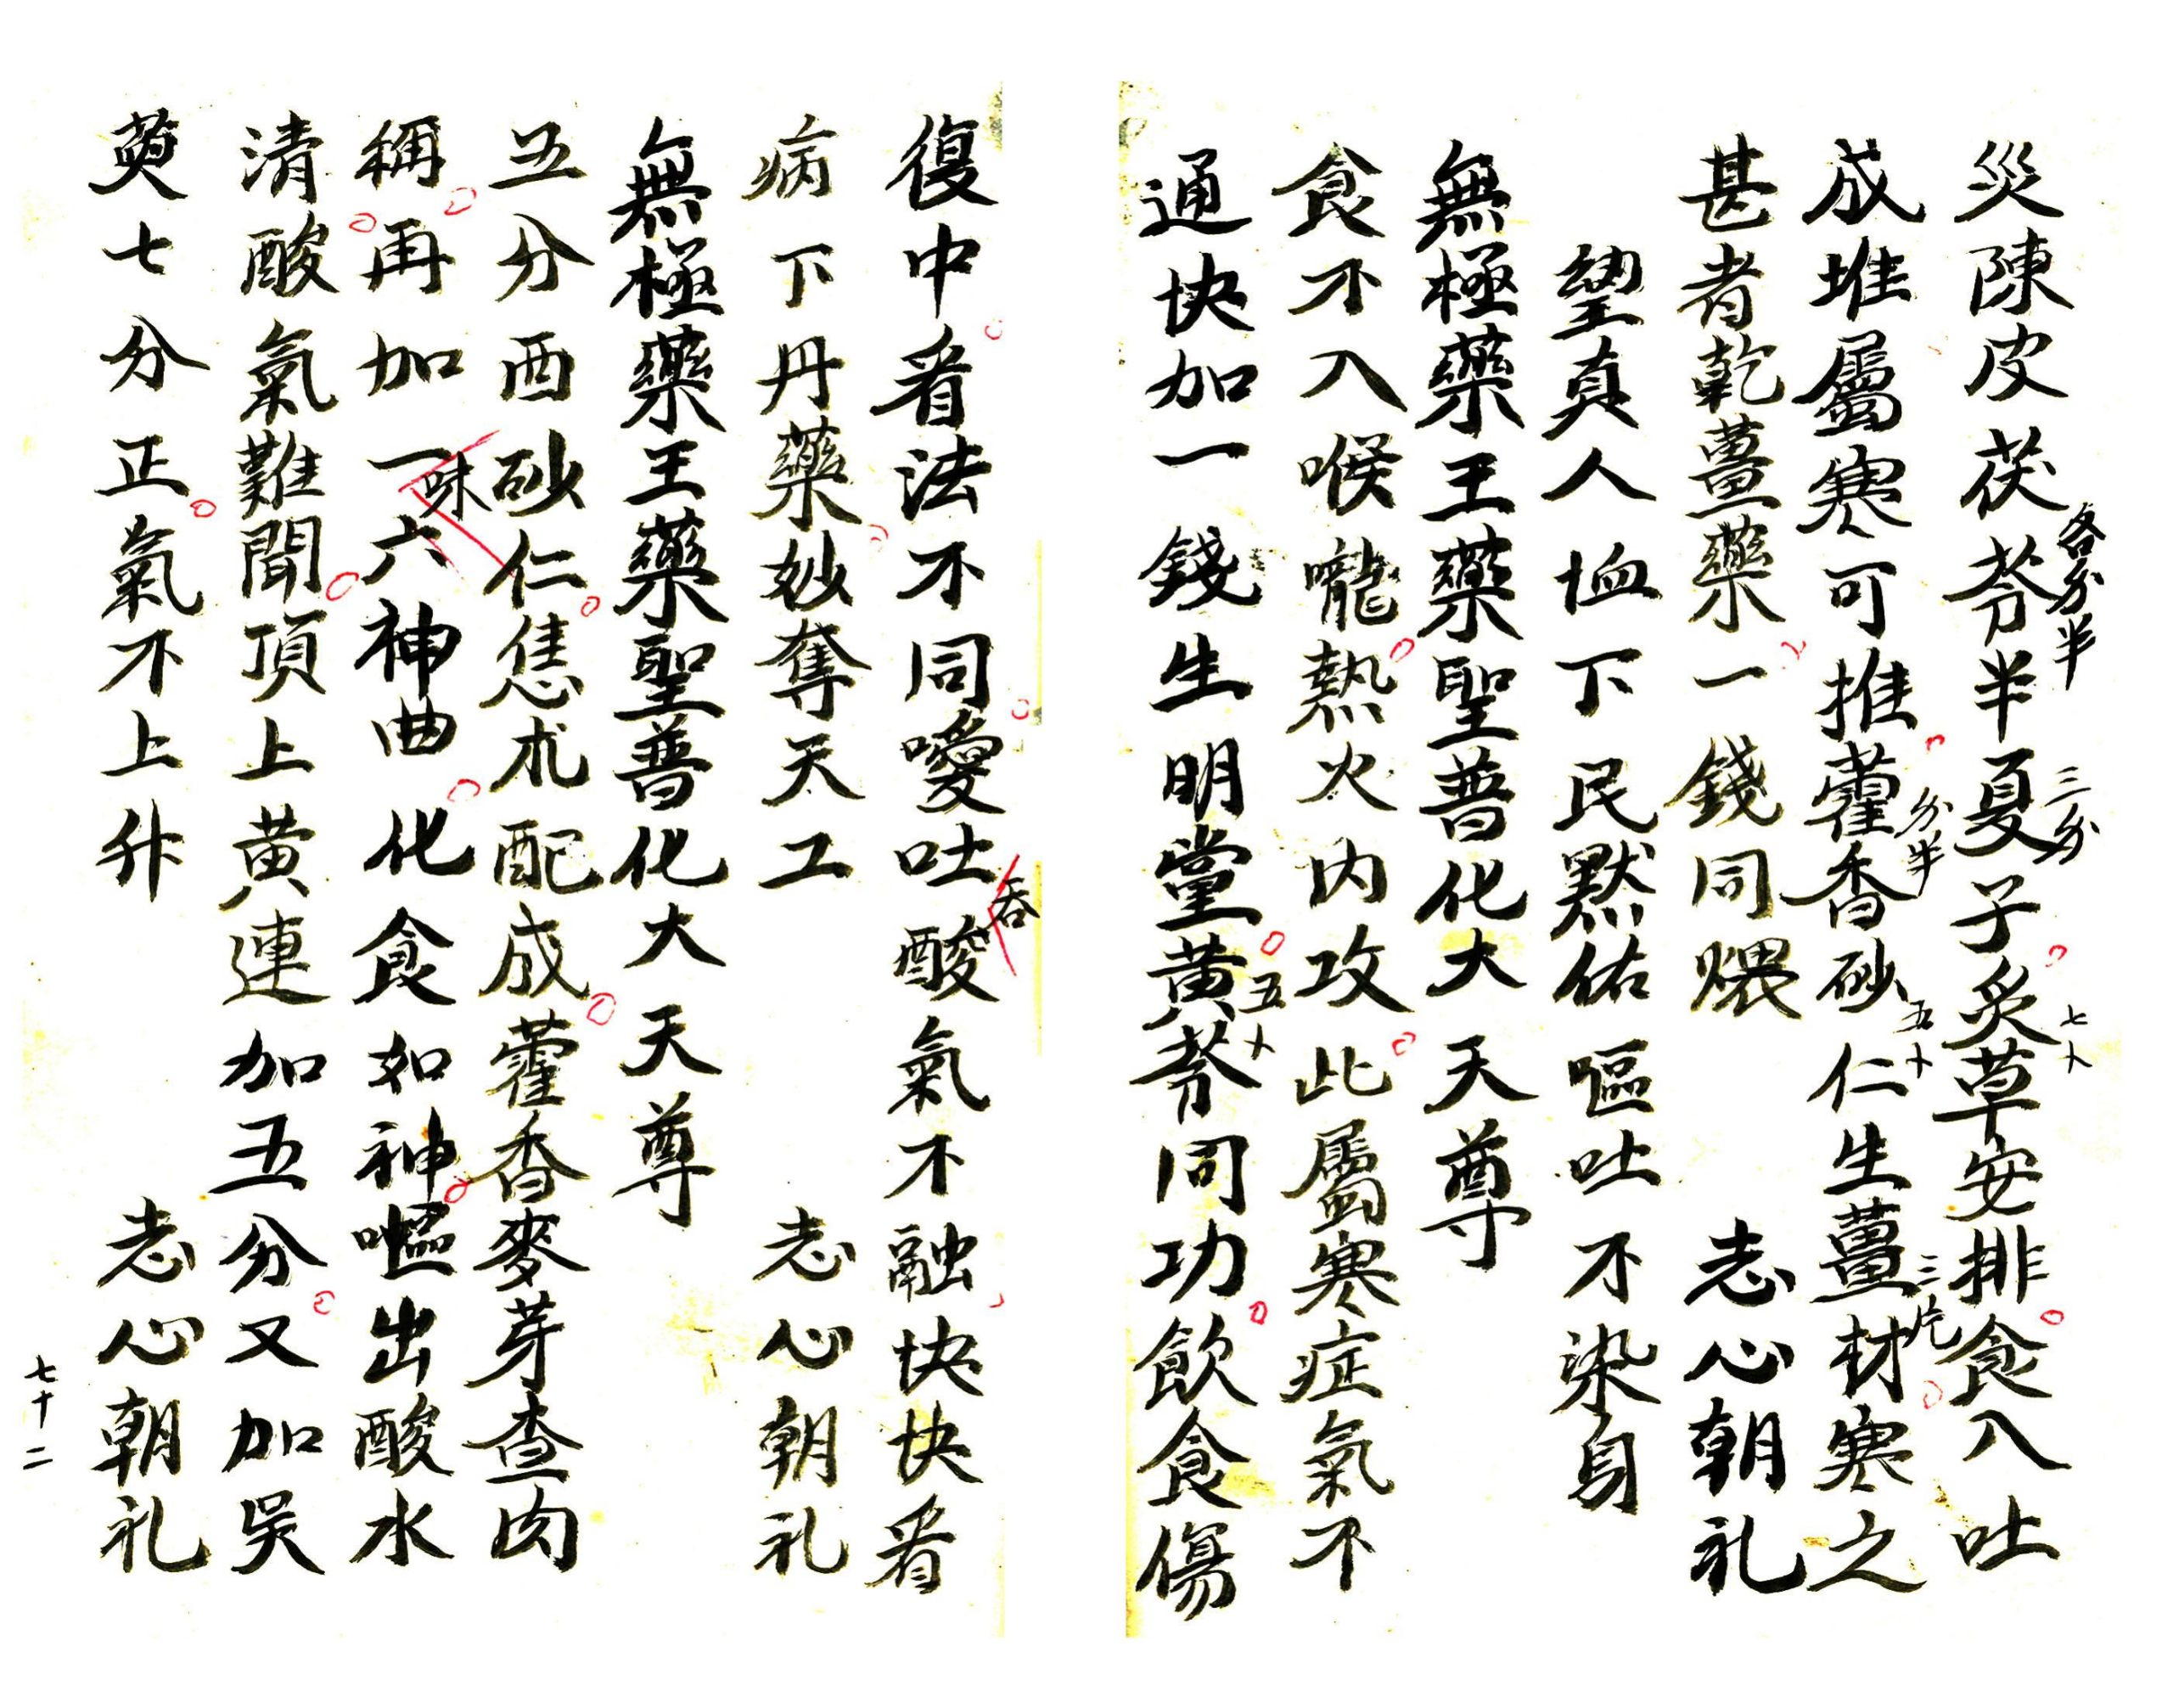 災陳皮茯苓各分半半夏三分子炙七卜草安排食入吐
成堆屬寒可推藿香分半砂五卜仁生薑三片材寒之
甚者乾薑藥一錢同煨 志心朝礼
望真人恤下民黙佑嘔吐不染身
無極藥王藥聖普化大天尊
食不入喉嚨熱火内攻此屬寒症氣不
通快加一錢生明黨黄芩五卜同功飲食傷
復中看法不同噯吐吞酸氣不融快快看
病下丹藥妙奪天工 志心朝礼
無極藥王藥聖普化大天尊
五分西砂仁恁朮配成藿香麥芽查肉
稱再加一味六神曲化食如神嘔出酸水
清酸氣難聞頂上黄連加五分又加吳
萸七分正氣不上升 志心朝礼
七十二